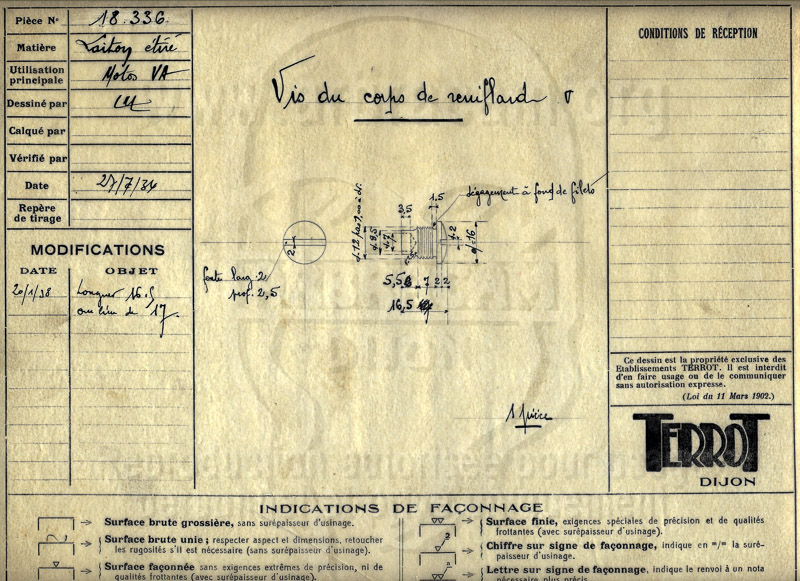 Pièce Nº 18.336.
Matière Laiton étiré
Utilisation principale Motos VA
Dessiné par
Calqué par
Vérifié par
Date 27/7/34
Repère de tirage
MODIFICATIONS
DATE OBJET
20/1/38 Longueur 16.5
au lieu de 17.
Vis du corps de reniflard
dégagement à fond de filets
1.5
3,5
fente larg. 2
prof. 2,5
2
7 2 2
16,5
1 pièce
CONDITIONS DE RÉCEPTION
Ce dessin est la propriété exclusive des
Etablissements TERROT. Il est interdit
d'en faire usage ou de le communiquer
sans autorisation expresse.
(Loi du 11 Mars 1902.)
TERROT
DIJON
INDICATIONS DE FAÇONNAGE
Surface brute grossière, sans surépaisseur d'usinage.
Surface brute unie; respecter aspect et dimensions, retoucher
les rugosités s'il est nécessaire (sans surépaisseur d'usinage).
Surface façonnée sans exigences extrêmes de précision, ni de
qualités frottantes (avec surépaisseur d'usinage).
Surface finie, exigences spéciales de précision et de qualités
frottantes (avec surépaisseur d'usinage).
Chiffre sur signe de façonnage, indique en m/m la suré-
paisseur d'usinage.
Lettre sur signe de façonnage, indique le renvoi à un nota
nécessaire plus précis